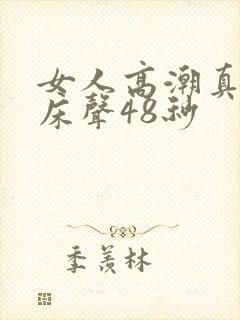 女人高潮真
床聲48秒
季羨林